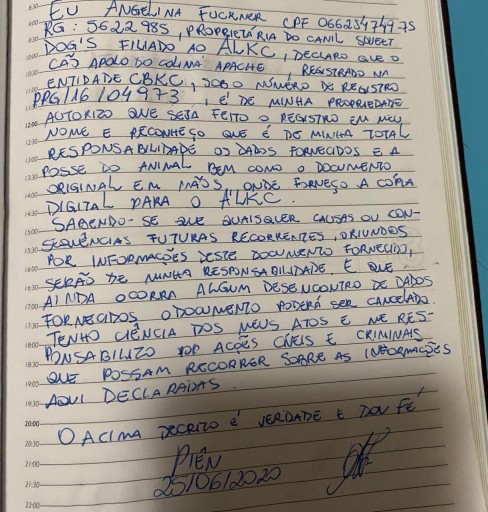 EU ANGELINA FUCKNER CPF 066234749-75
RG: 5622985, PROPRIETÁRIA DO CANIL SWEET
DOG'S FILIADO AO ALKC, DECLARO QUE O
CÃO APOLO DO COLINA APACHE, REGISTRADO NA
ENTIDADE CBKC, SOB O NÚMERO DE REGISTRO
PPG/16/04973, É DE MINHA PROPRIEDADE
AUTORIZO QUE SEJA FEITO O REGISTRO EM MEU
NOME E RECONHEÇO QUE É DE MINHA TOTAL
RESPONSABILIDADE OS DADOS FORNECIDOS E A
POSSE DO ANIMAL BEM COMO O DOCUMENTO
ORIGINAL EM MÃOS, ONDE FORNEÇO A CÓPIA
DIGITAL PARA O ALKC.
SABENDO-SE QUE QUAISQUER CAUSAS OU CON-
SEQUÊNCIAS FUTURAS RECORRENTES, ORIUNDOS
POR INFORMAÇÕES DESTE DOCUMENTO FORNECIDO,
SERÃO DE MINHA RESPONSABILIDADE. E QUE
AINDA OCORRA ALGUM DESENCONTRO DE DADOS
FORNECIDOS O DOCUMENTO PODERÁ SER CANCELADO.
TENHO CIÊNCIA DOS MEUS ATOS E ME RES-
PONSABILIZO POR AÇÕES CÍVEIS E CRIMINAIS
QUE POSSAM RECORRER SOBRE AS INFORMAÇÕES
AQUI DECLARADAS.
O ACIMA DESCRITO É VERDADE E DOU FÉ
PIÊN
25/06/2020